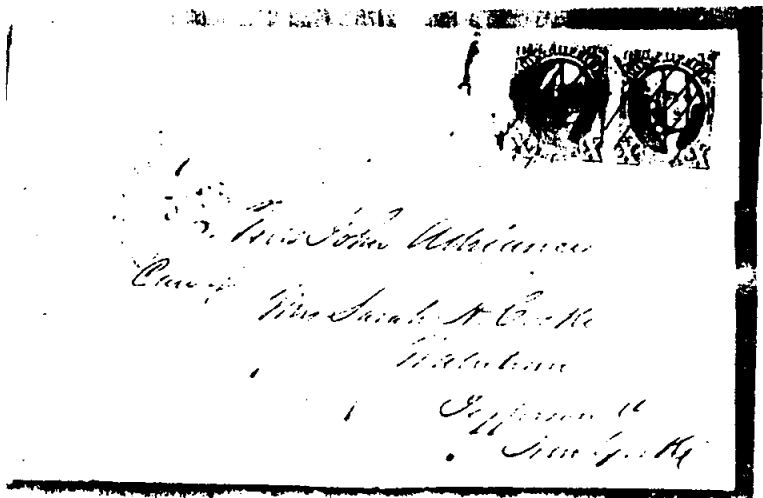 Mrs John Adriance
Care of
Mrs Sarah N. Cooke
Watertown
Jefferson Co
New York